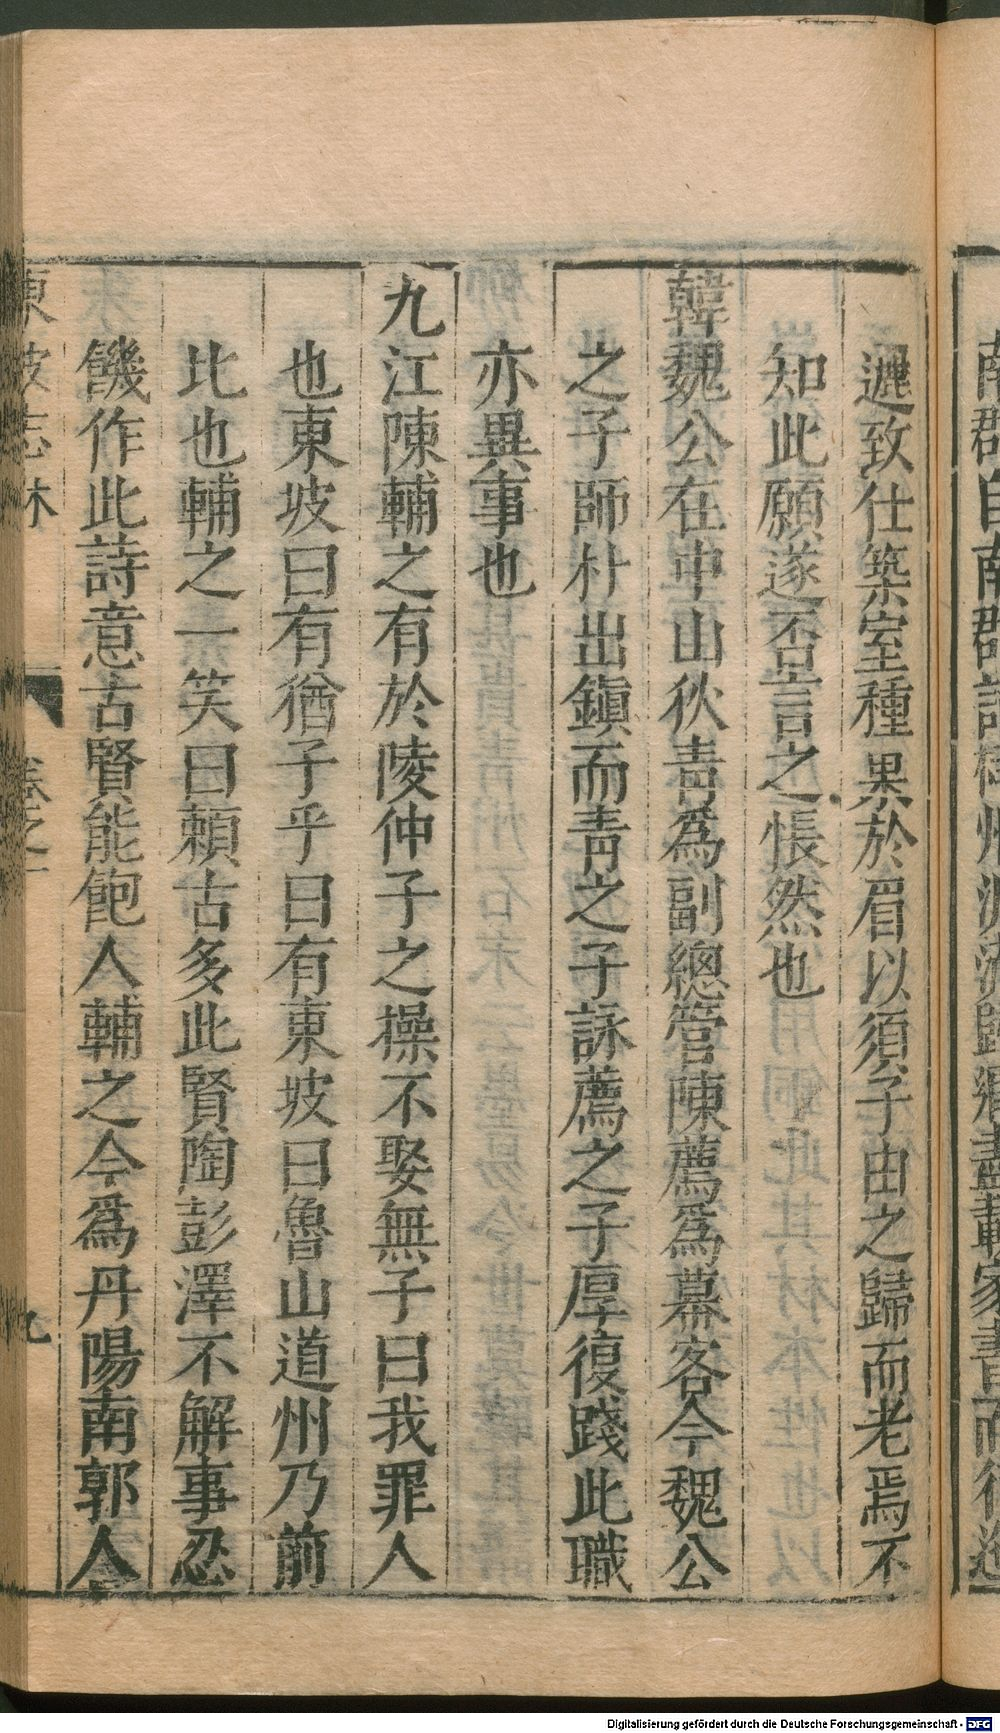 遲致仕築室種果於眉以須子由之歸而老焉不
知此願遂否言之悵然也
韓魏公在中山狄青爲副總管陳薦爲幕客今魏公
之子師朴出鎮而青之子詠薦之子厚復踐此職
亦異事也
九江陳輔之有於陵仲子之操不娶無子曰我罪人
也東坡曰有猶子乎曰有東坡曰魯山道州乃前
比也輔之一笑曰賴古多此賢陶彭澤不解事忍
饑作此詩意古賢能飽人輔之今爲丹陽南郭人
東坡志林
卷之一
九
Digitalisierung gefördert durch die Deutsche Forschungsgemeinschaft - DFG